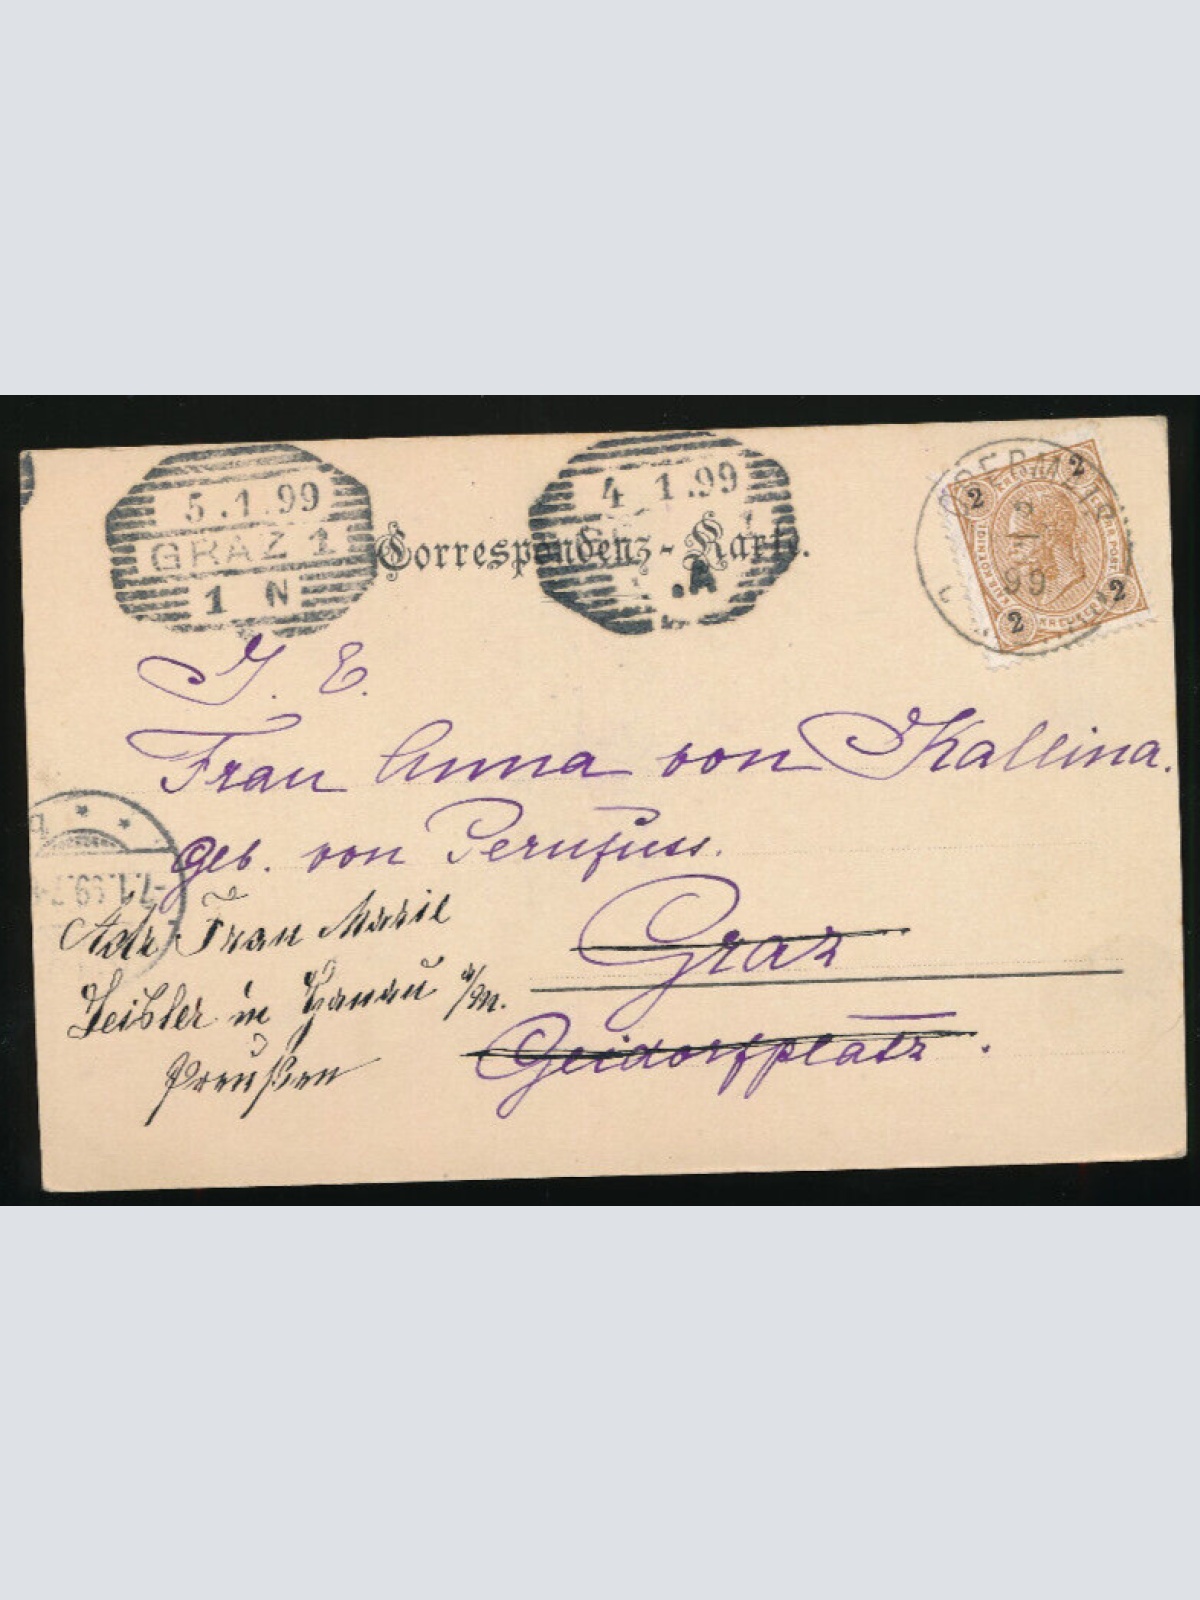 5.1.99
GRAZ 1
1 N
Correspondenz-Karte.
4 1.99
.A
2
99
2 2
2 2
J. E.
Frau Anna von Kallina.
geb. von Pernfuss.
Graz
Geidorfplatz.
-7.1.99.7-
Adr. Frau Marie
Leisler in Hanau a/M.
Preußen